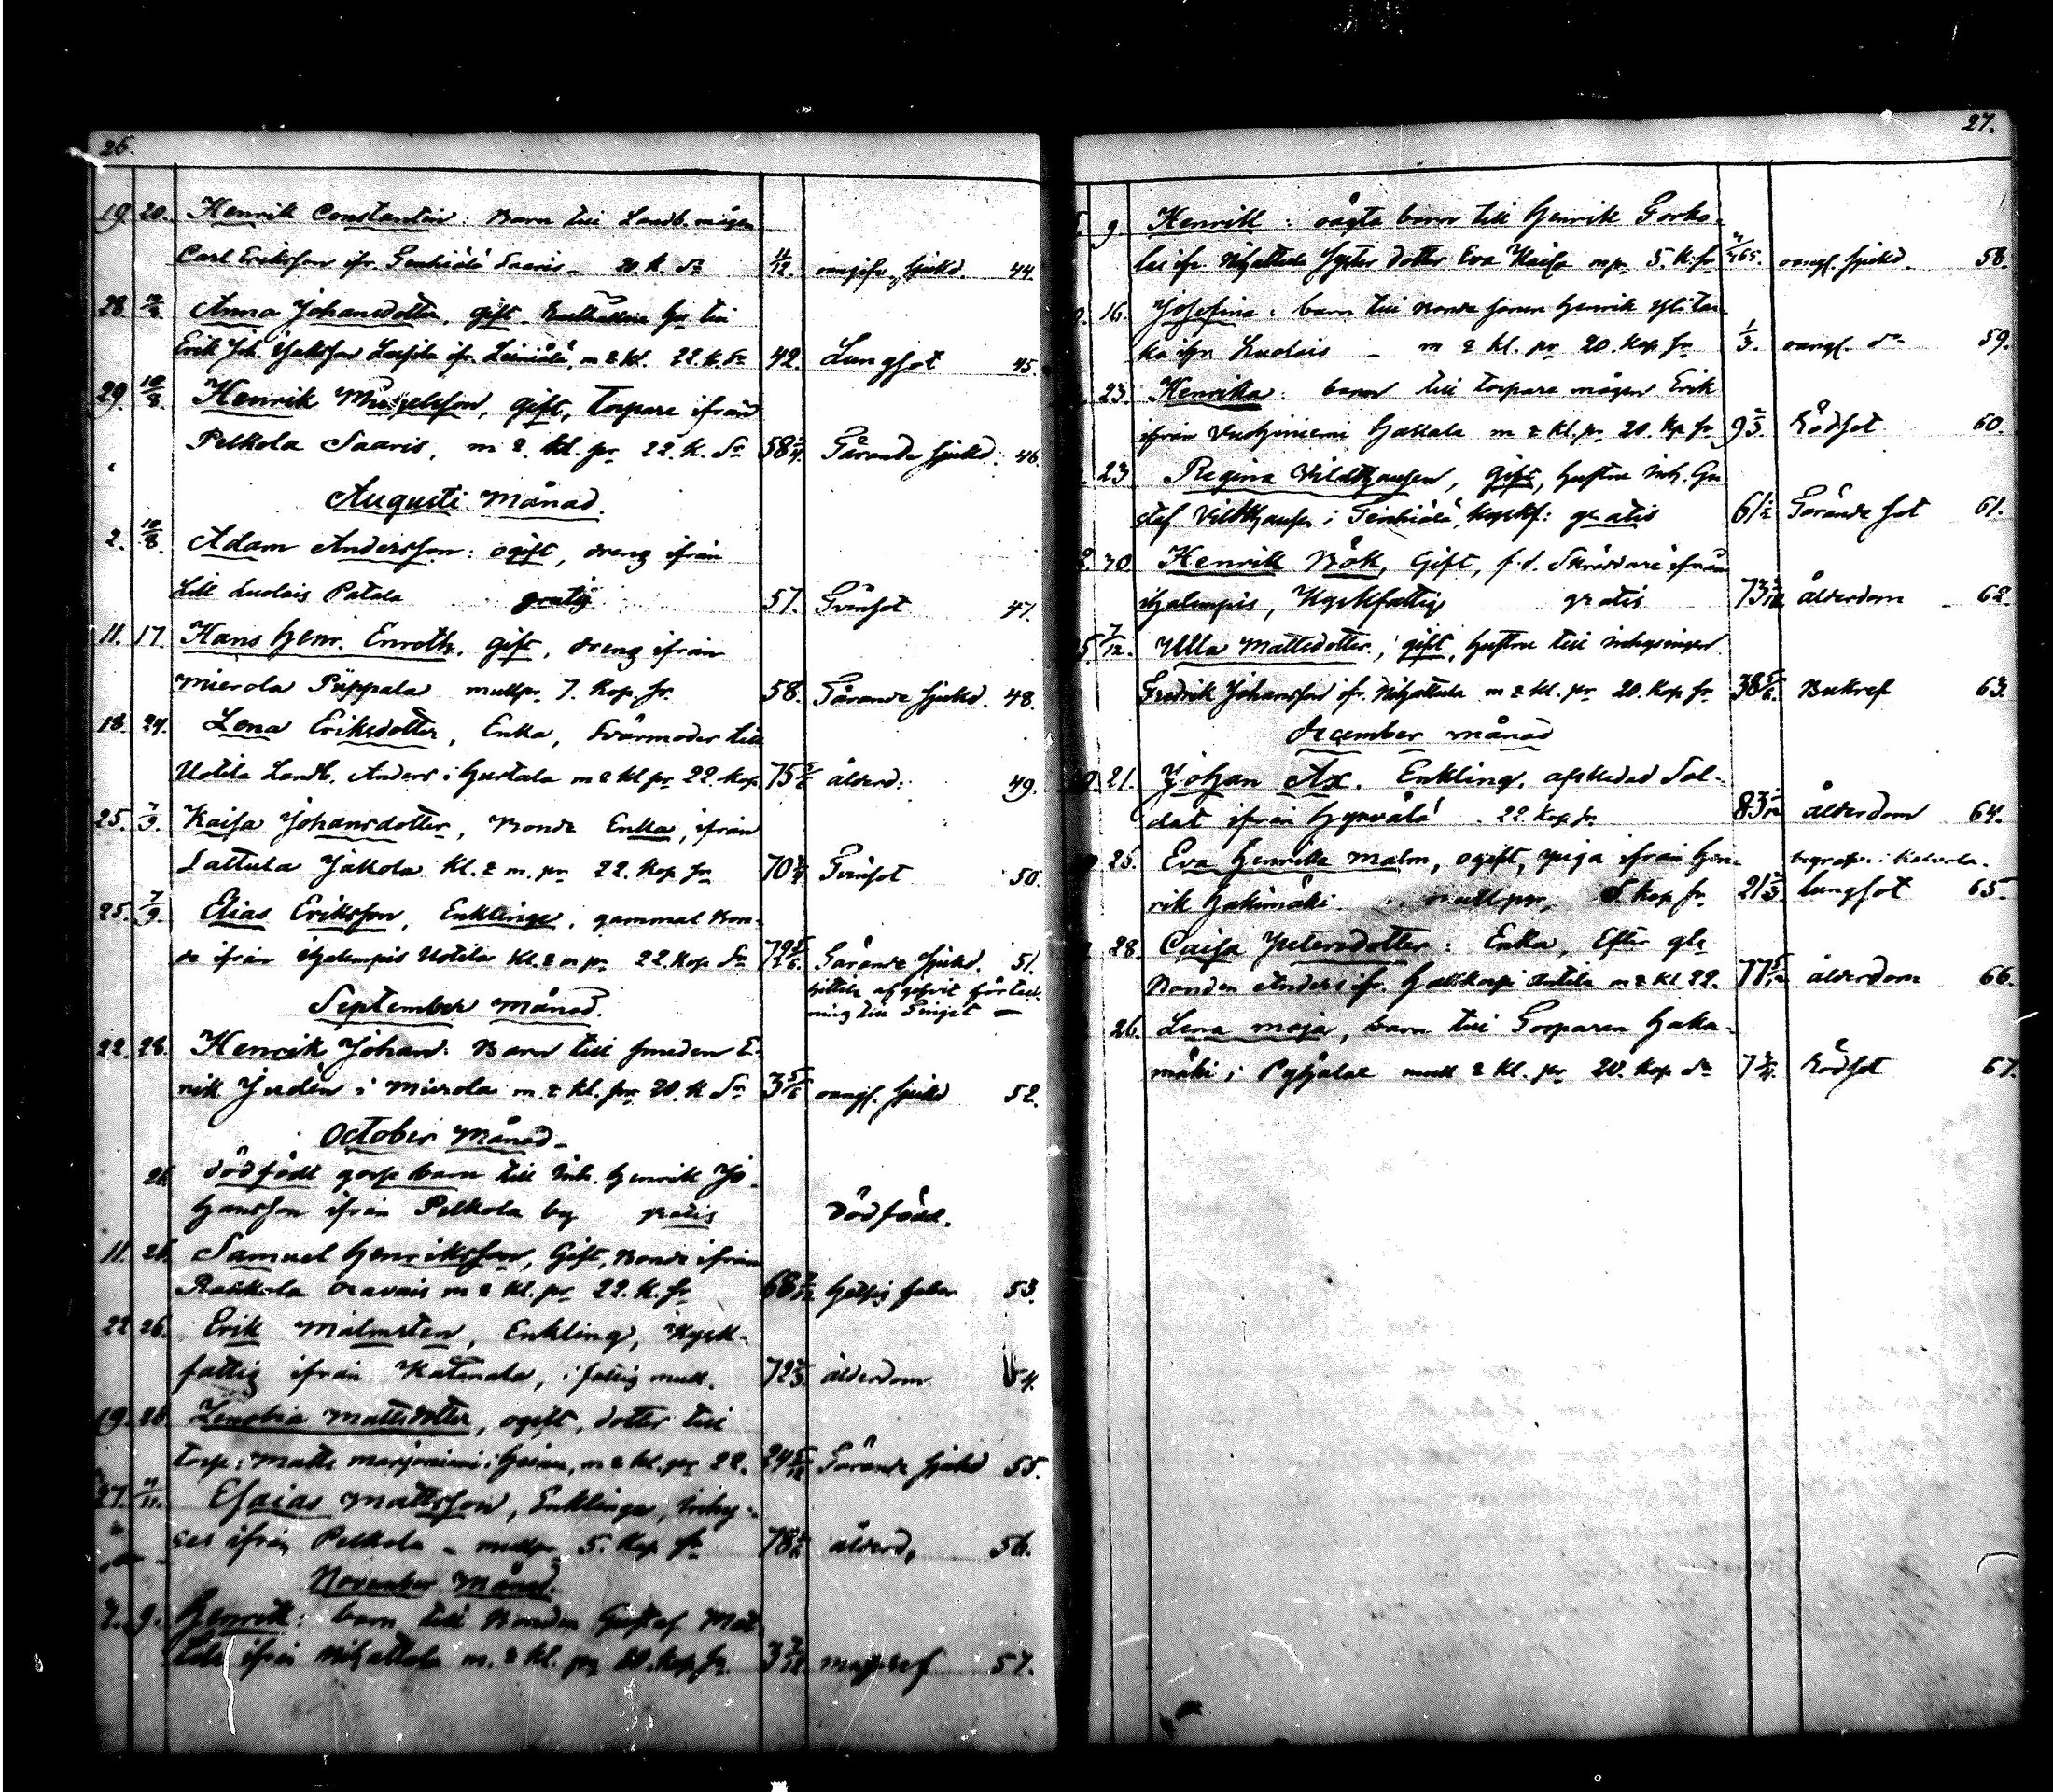 26.
19. 20. Henrik Constantin: Barn till Landb. mågen
Carl Eriksson ifr. Saaris 20. k. Sr 11/12 44.
28 Anna Johansdotter, gift, till
Erik Joh. m & kl. 22. k. Sr 42. Lungsot 45.
29. 10/8. Henrik Mickelsson, gift, Torpare ifrån
Pelkola Saaris, m & kl. pr 22. k. Sr 58 Tärande sjukd. 46.
Augusti Månad.
2. 10/8. Adam Andersson: ogift, dreng ifrån
Lill Luolais Patala gratis 57. Tvinsot 47.
11. 17. Hans Henr. Enroth, gift, dreng ifrån
Mierola Pippala mullpr. 7. Kop. Sr. 58. Tärande sjukd. 48.
18. 24. Lena Eriksdotter, Enka, Svärmoder till
Uotila Landb. Anders i Hurtala m & kl pr 22. Kop. 75 ålderd: 49.
25. 7/9. Kaisa Johansdotter, Bonde Enka, ifrån
Sattula Jakola kl. & m. pr 22. Kop Sr 70 Tvinsot 50.
25. 7/9. Elias Eriksson, Enklinge, gammal Bon-
de ifrån Ihalempis Uotila kl. & m pr 22. Kop Sr 79 Tärande sjukd. 51.
till Tinget
September Månad.
22. 28. Henrik Johan: Barn till smeden E-
rik Jurdén i Mierola m. & kl. pr 20. k Sr 3 5/6 oangf. sjukd 52.
October Månad
26. Dödfödt gosse barn till Inh. Henrik Jo-
hansson ifrån Pelkola by gratis Dödfödd.
11. 26. Samuel Henriksson, Gift, Bonde ifrån
Oravais m & kl. pr 22. k. Sr 68 53.
22 26. Erik Malmsten, Enkling, Kyrk-
fattig ifrån Katinala, i fattig mull. 72 ålderdom 54.
19. 26 Zenobia Mattsdotter, ogift, dotter till
Torp: Matts Marjoniemi i m & kl. pr 22. 24 Tärande sjukd 55.
27. Esaias Mattsson, Enklinge, Inhy-
ses ifrån Pelkola mullpr 5. Kop Sr 78 ålderd, 56.
November Månad.
7. 9. Henrik: barn till Bonden Gustaf
ifrån Nihattula m. & kl. pr 20. Kop Sr. 3 7/12. 57.
27.
9 Henrik: oägta barn till Henrik
ifr. Nihattula dotter Eva Kaisa mpr 5. k. Sr oangf. sjukd. 58.
16. Josefina: barn till Bonde sonen Henrik
ifr. Luolais m & kl. pr 20. Kop Sr 1/3. oangf. do 59.
23. Henrika: barn till torpare mågen Erik
ifrån m & kl. pr 20. Kop Sr 9 Rödsot 60.
23 Regina Vildthausen, gift, hustru Inh. Gu
staf Vildthausen i Kyrkf: gratis 61 Tärande sot 61.
30 Henrik Bök, Gift, f.d. Skräddare ifrån
Ihalempis, Kyrkfattig gratis 73 ålderdom 62.
7/12. Ulla Mattsdotter, gift, hustru till Inhysingen
Fredrik Johansson ifr. Nihattula m & kl. pr 20. Kop Sr 38 5/6. Bukref 63.
December månad
21. Johan Ax. Enkling, afskedad Sol-
dat ifrån Hyrvälä 22 Kop Sr. 83 ålderdom 64.
25. Eva Henrika Malm, ogift, piga ifrån Hen- begrafv. i Kalvola.
rik Hakimäki mullpr, 5 Kop Sr. 21 lungsot 65.
28. Caisa Petersdotter: Enka, Efter gle
Bonden Anders ifr. Antila m & kl 22. 77 5/12 ålderdom 66.
26. Lena Maja, barn till Torparen Haka-
mäki i mull & kl. pr 20. Kop Sr 7 Rödsot 67.